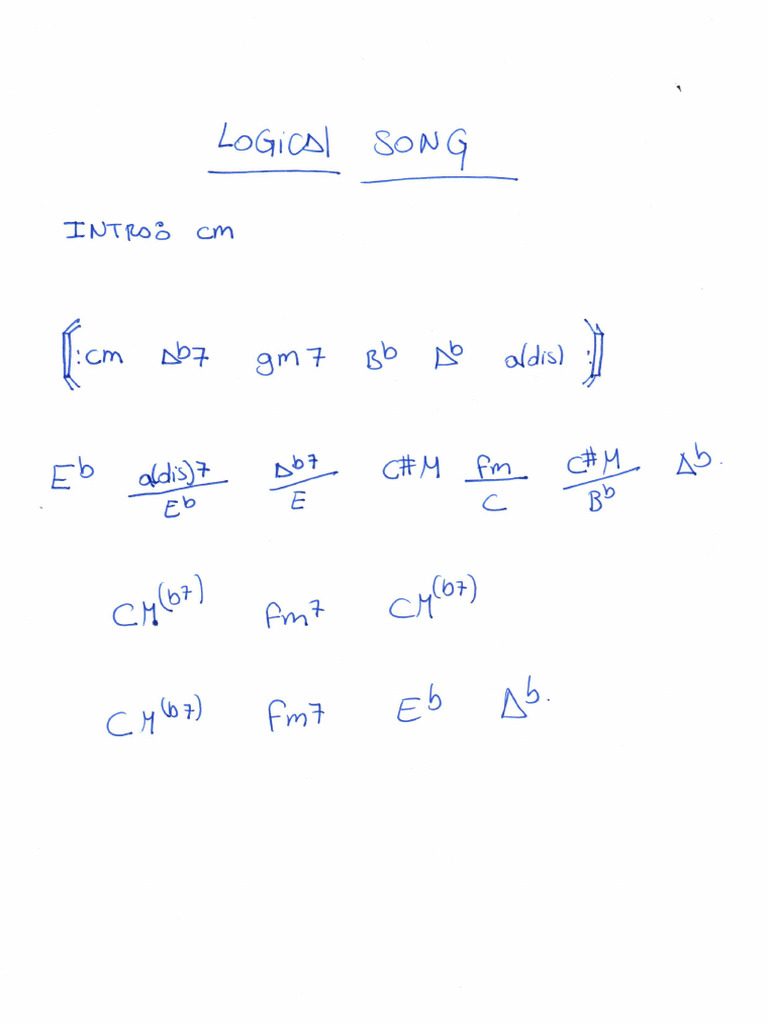 LOGICAL SONG
INTRO: cm
[: cm Ab7 gm7 Bb Ab a(dis) :]
Eb a(dis)7/Eb Ab7/E C#M fm/C C#M/Bb Ab.
CM(b7) fm7 CM(b7)
CM(b7) fm7 Eb Ab.